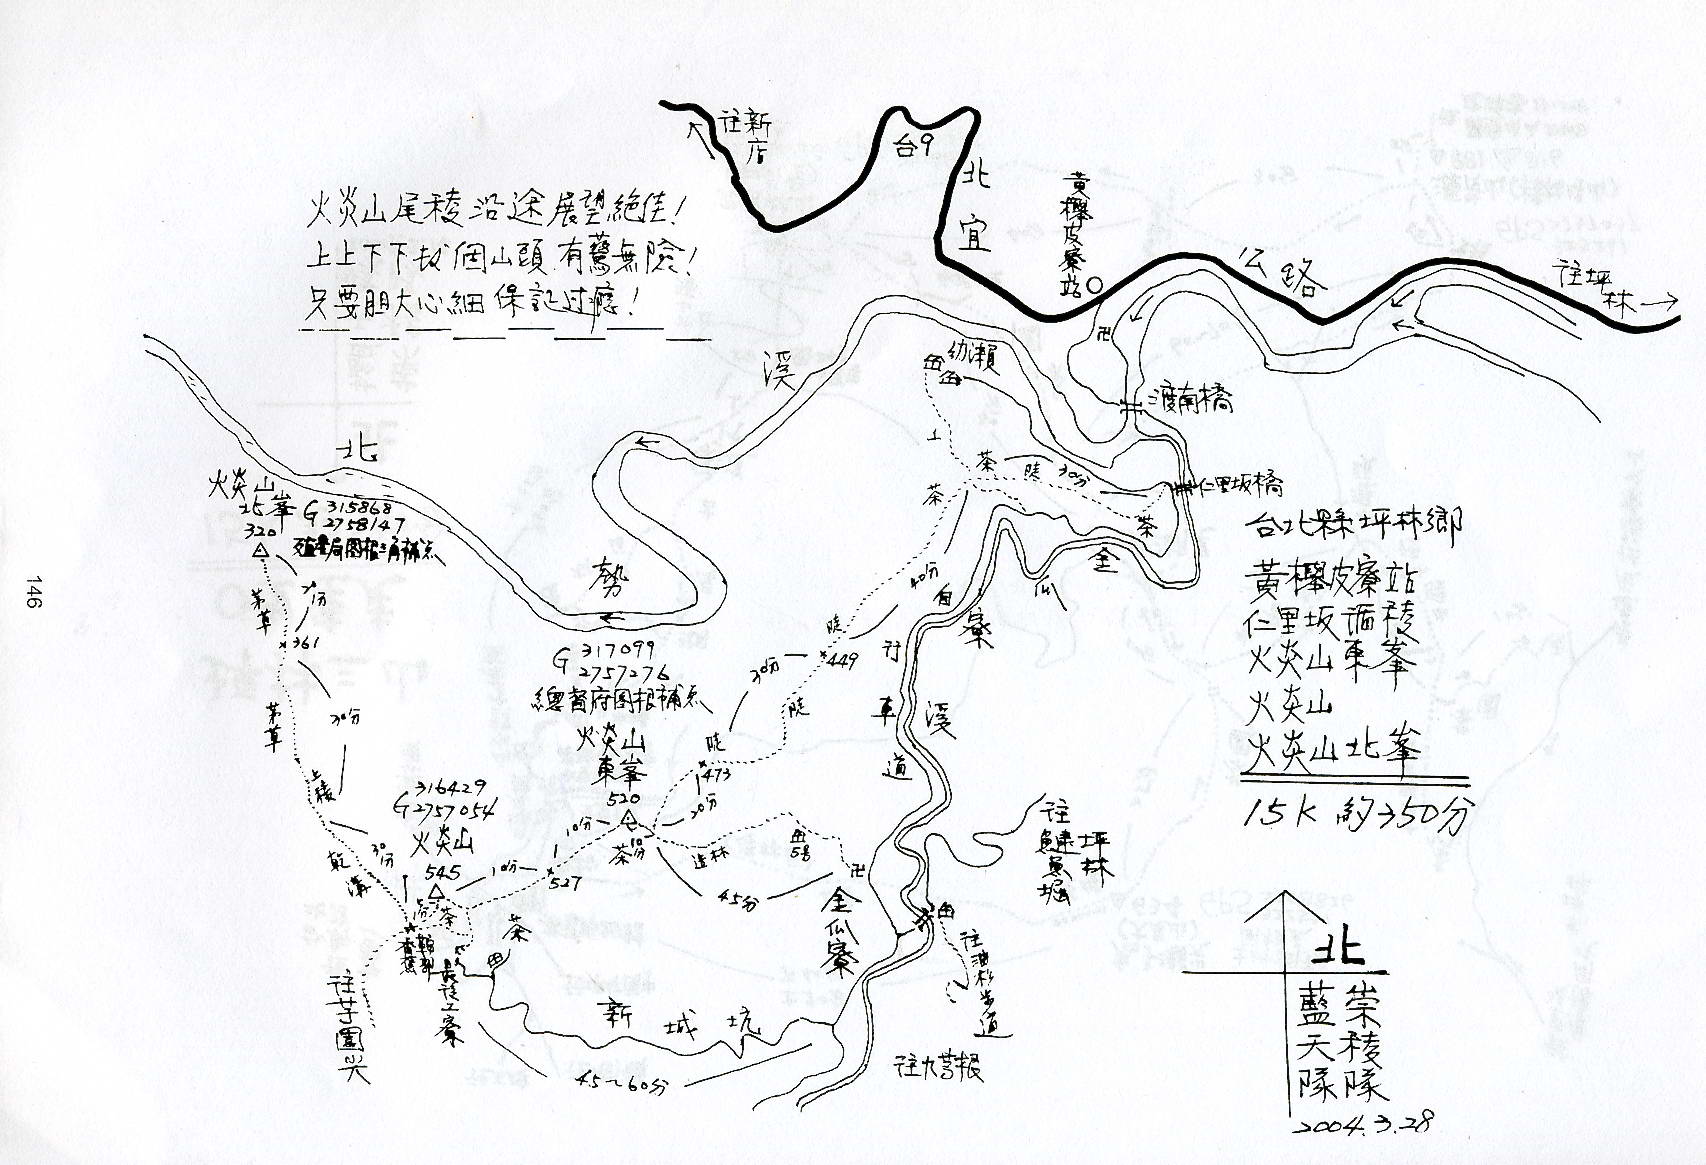 往新店
台9
北宜公路
黃櫸皮寮站
往坪林
火炎山尾稜沿途展望絕佳!
上上下下 個山頭 有驚無險!
只要胆大心細 保証过癮!
北勢溪
幼瀨
渡南橋
仁里坂橋
上
茶
陡
30分
茶
茶
金瓜寮溪
自行車道
40分
陡
449
30分
陡
陡
473
20分
火炎山
北峯
320
G 315868
2758147
茅草
361
茅草
30分
上稜
30分
乾溝
G 317099
2757276
總督府图根補点
火炎山
東峯
520
10分
茶
造林
5号
45分
卍
卍
527
10分
G 316429
2757054
火炎山
545
茶
茶
香蕉
鞍部
最後工寮
往芋園尖
新城坑
45~60分
金瓜寮
往鰱魚堀
坪林
往油杉步道
往九芎根
台北縣坪林鄉
黃櫸皮寮站
仁里坂 稜
火炎山東峯
火炎山
火炎山北峯
15K 約350分
北
崇稜隊
藍天隊
2004.3.28
146